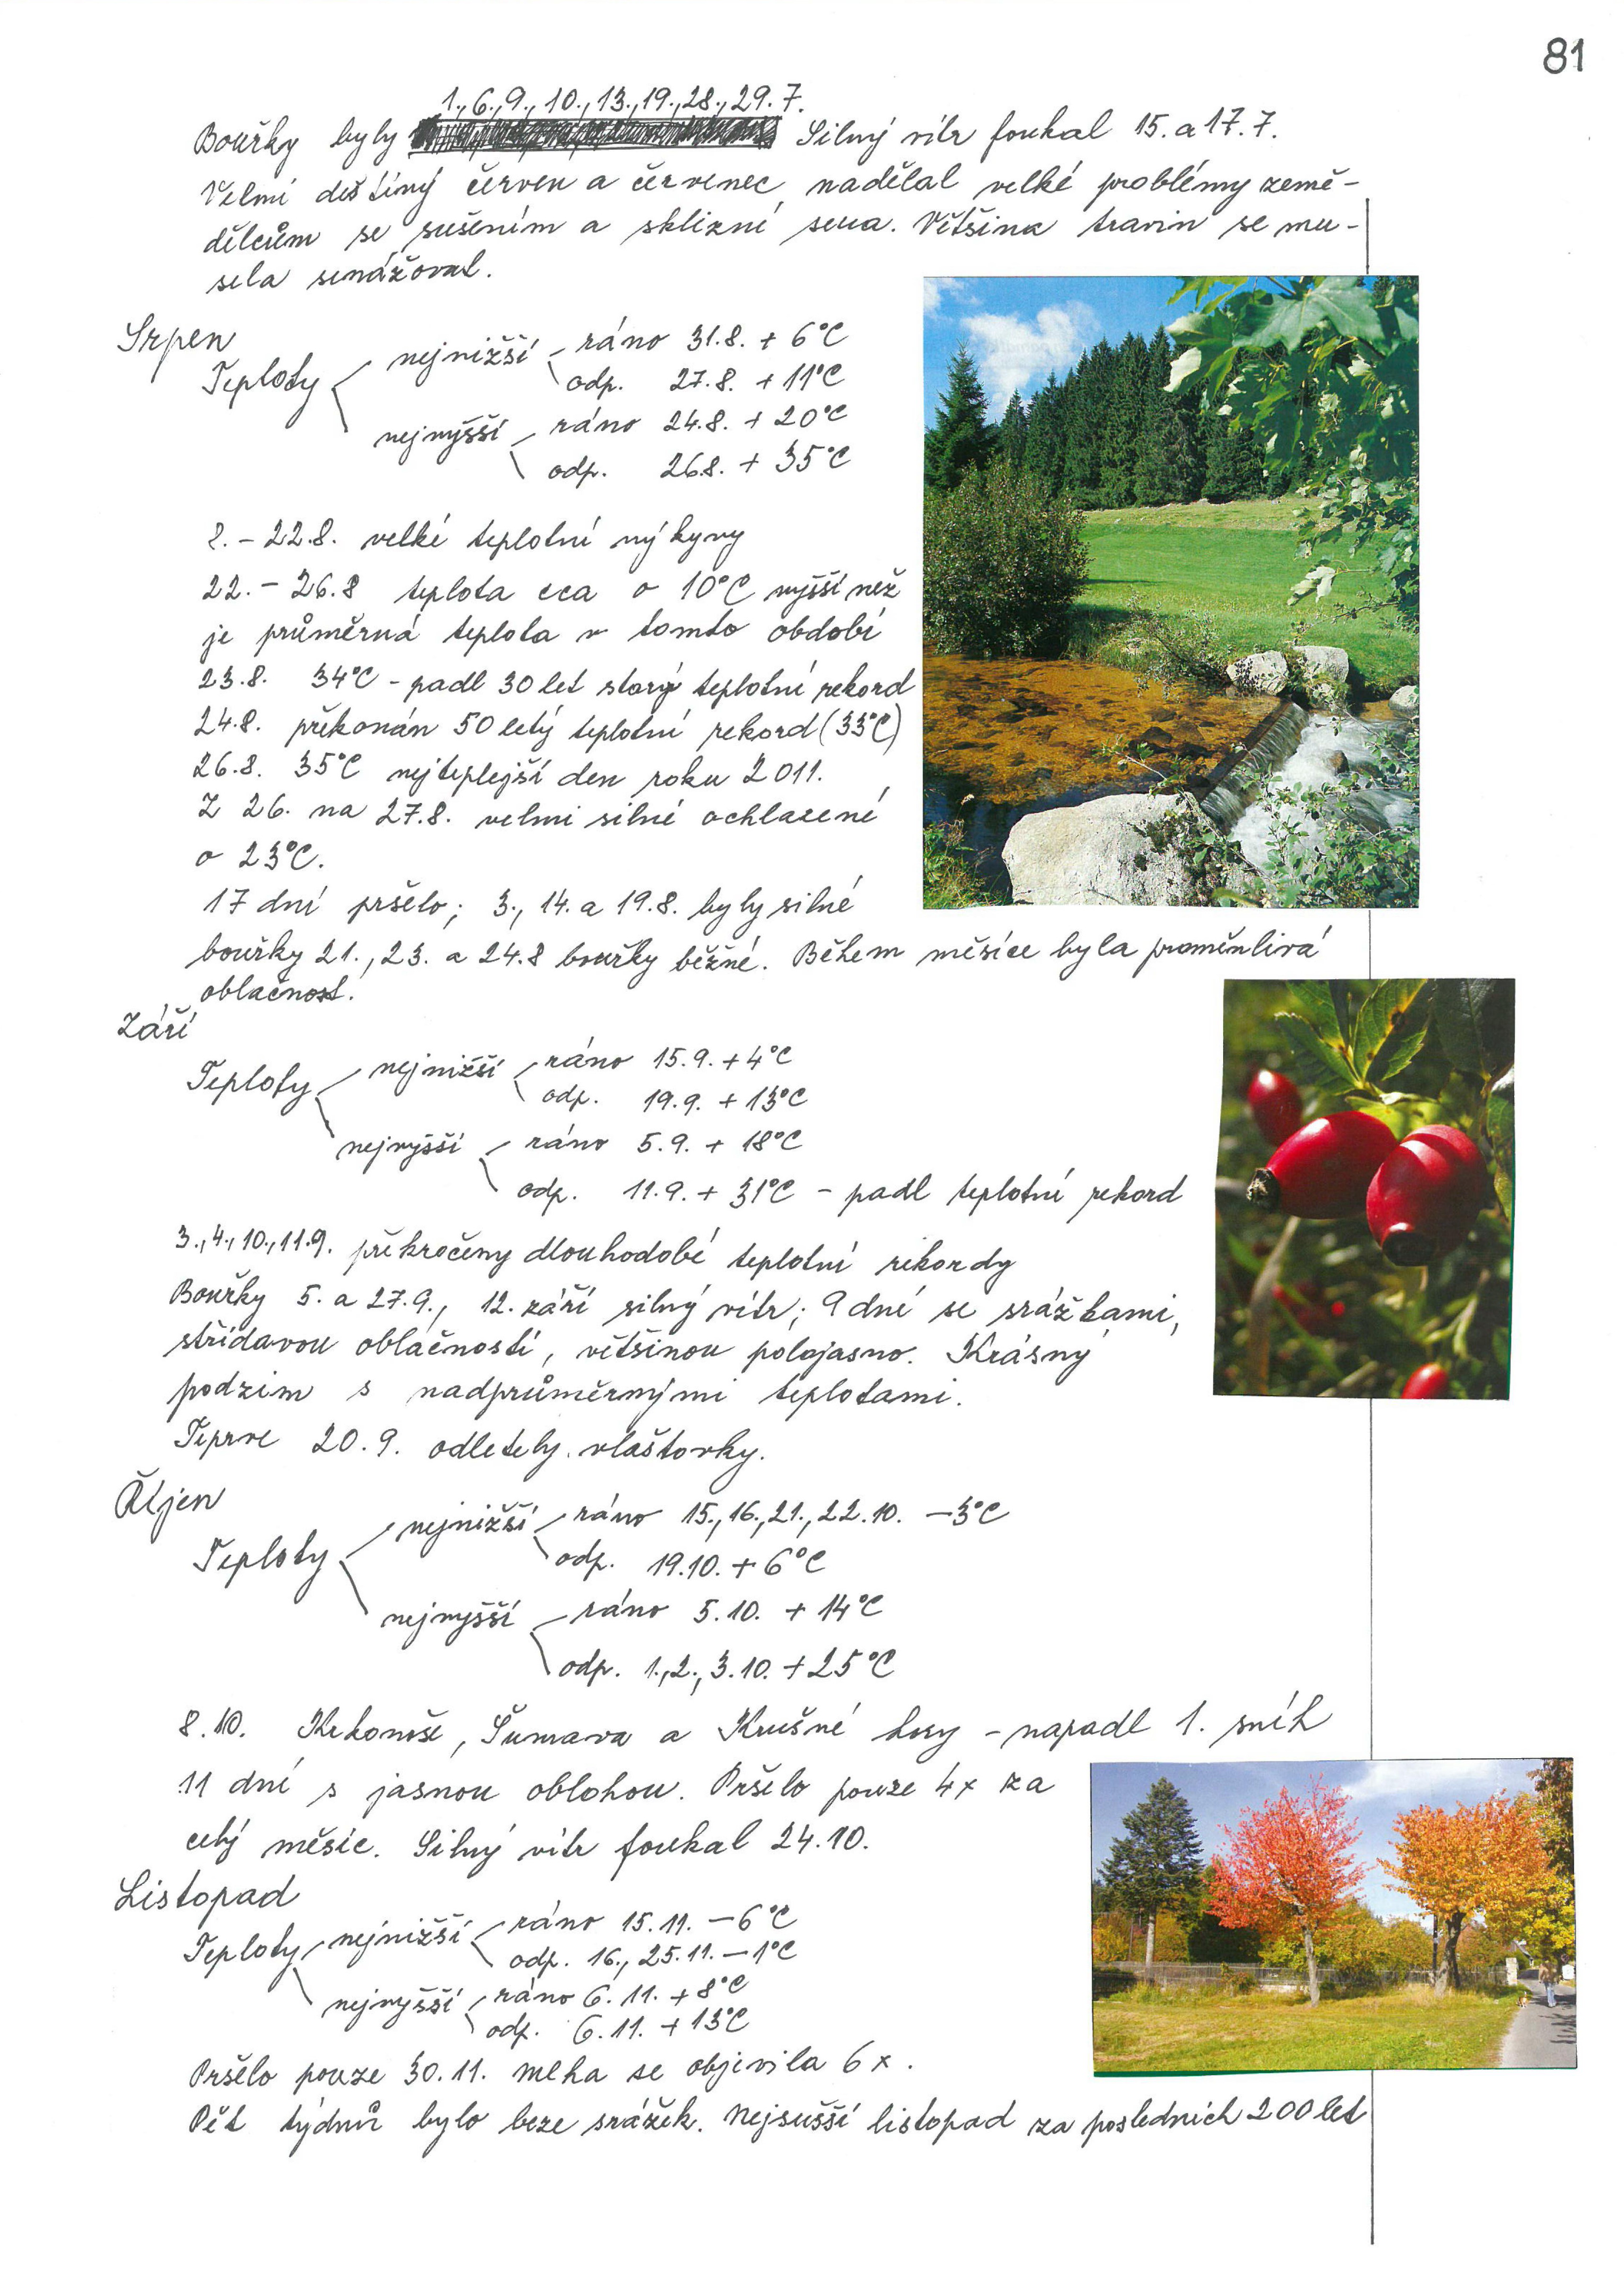 81
1., 6., 9., 10., 13., 19., 28., 29. 7.
Bouřky byly Silný vítr foukal 15. a 17. 7.
Velmi deštivý červen a červenec nadělal velké problémy země-
dělcům se sušením a sklizní sena. Většina travin se mu-
sela senážovat.
Srpen
Teploty nejnižší ráno 31.8. + 6°C
odp. 27.8. + 11°C
nejvyšší ráno 24.8. + 20°C
odp. 26.8. + 35°C
8. - 22.8. velké teplotní výkyvy
22. - 26.8 teplota cca o 10°C vyšší než
je průměrná teplota v tomto období
23.8. 34°C - padl 30 let starý teplotní rekord
24.8. překonán 50 letý teplotní rekord (33°C)
26.8. 35°C nejteplejší den roku 2011.
Z 26. na 27.8. velmi silné ochlazení
o 23°C.
17 dní pršelo; 3., 14. a 19.8. byly silné
bouřky 21., 23. a 24.8 bouřky běžné. Během měsíce byla proměnlivá
oblačnost.
Září
Teploty nejnižší ráno 15.9. + 4°C
odp. 19.9. + 13°C
nejvyšší ráno 5.9. + 18°C
odp. 11.9. + 31°C - padl teplotní rekord
3., 4., 10., 11.9. překročeny dlouhodobé teplotní rekordy
Bouřky 5. a 27.9., 12. září silný vítr; 9 dní se srážkami,
střídavou oblačností, většinou polojasno. Krásný
podzim s nadprůměrnými teplotami.
Teprve 20.9. odletely vlaštovky.
Říjen
Teploty nejnižší ráno 15., 16., 21., 22.10. -3°C
odp. 19.10. + 6°C
nejvyšší ráno 5.10. + 14°C
odp. 1., 2., 3.10. + 25°C
8.10. Krkonoše, Šumava a Krušné hory - napadl 1. sníh
11 dní s jasnou oblohou. Pršelo pouze 4x za
celý měsíc. Silný vítr foukal 24.10.
Listopad
Teploty nejnižší ráno 15.11. -6°C
odp. 16., 25.11. -1°C
nejvyšší ráno 6.11. +8°C
odp. 6.11. +13°C
Pršelo pouze 30.11. mlha se objevila 6x.
Pět týdnů bylo beze srážek. Nejsušší listopad za posledních 200 let